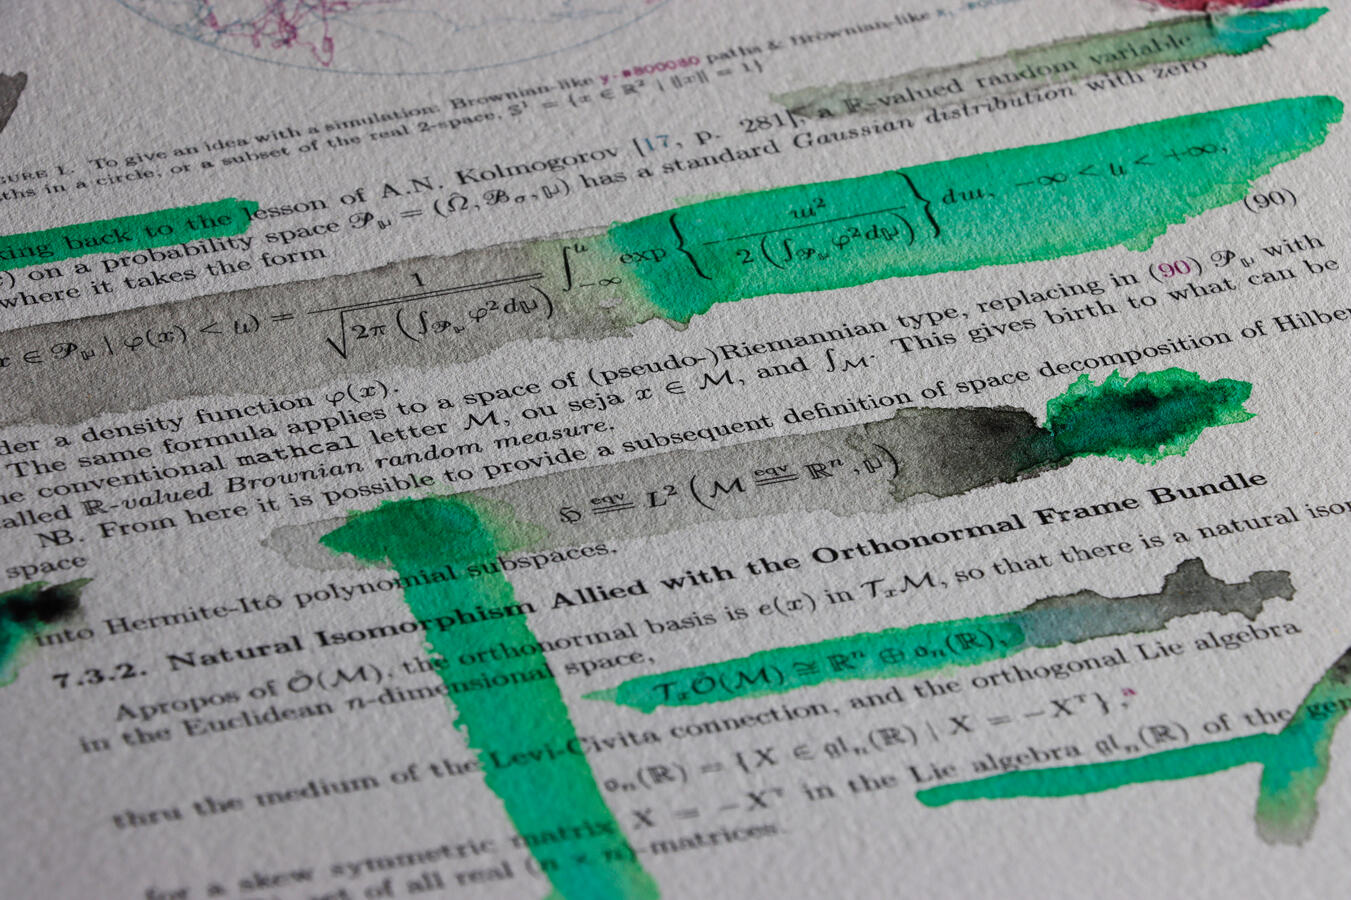 GURE 1. To give an idea with a simulation: Brownian-like y-#800080 paths & Brownian-like x,
ths in a circle, or a subset of the real 2-space, 𝕊¹ = {x ∈ ℝ² | ‖x‖ = 1}
king back to the lesson of A.N. Kolmogorov [17, p. 281], a ℝ-valued random variable
) on a probability space 𝒫_𝕡 = (Ω̂, ℬ_σ, 𝕡) has a standard Gaussian distribution with zero
where it takes the form
x ∈ 𝒫_𝕡 | φ(x) < u) = 1 / √(2π (∫_𝒫𝕡 φ²d𝕡)) ∫_{−∞}^{u} exp { w² / 2 (∫_𝒫𝕡 φ²d𝕡) } dw, −∞ < u < +∞,
(90)
der a density function φ(x).
The same formula applies to a space of (pseudo-)Riemannian type, replacing in (90) 𝒫_𝕡 with
e conventional mathcal letter ℳ, ou seja x ∈ ℳ, and ∫_ℳ. This gives birth to what can be
alled ℝ-valued Brownian random measure.
NB. From here it is possible to provide a subsequent definition of space decomposition of Hilber
space
ℌ eqv== L² (ℳ eqv== ℝⁿ, 𝕡)
into Hermite-Itô polynomial subspaces.
7.3.2. Natural Isomorphism Allied with the Orthonormal Frame Bundle
Apropos of Ô(ℳ), the orthonormal basis is e(x) in 𝒯ₓℳ, so that there is a natural isom
in the Euclidean n-dimensional space,
𝒯ₓÔ(ℳ) ≅ ℝⁿ ⊕ 𝔬ₙ(ℝ),
thru the medium of the Levi-Civita connection, and the orthogonal Lie algebra
𝔬ₙ(ℝ) = {X ∈ 𝔤𝔩ₙ(ℝ) | X = −Xᵀ},ᵃ
for a skew symmetric matrix X = −Xᵀ in the Lie algebra 𝔤𝔩ₙ(ℝ) of the gen
set of all real (n × n)-matrices.